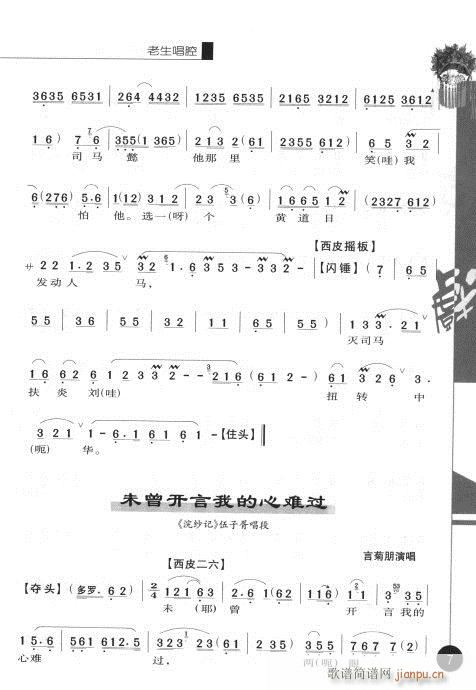 老生唱腔
3635 6531 | 264 4432 | 1235 6535 | 2165 3212 | 6125 3612
1 6 ) 5 7 6 | 355 (1 365) | 2 1 3 2 (61 | 2355 612) | 6 5 3 2
司马懿 他那里 笑(哇)我
6 (276) 5·6 | 1 (12) 3 1 2 | 2 3 3·(6 | 1 6 6 5 1 2 | (2327 612)
怕他。选一(呀)个 黄道日
【西皮摇板】
サ 2 2 1·2 3 5 3 2 1·6 3 5 3 - 3 3 2 - 【闪锤】 ( 7 | 6 5
发动人 马,
5 5 | 3 5 | 6 5 | 3 5 | 6 5 | 5 5 | 1 3 3·2 1
灭司马
1 6 1 6·1 2 1 2 3 2 - - 2 1 6 (6 1 2 - ) 6 1 3 2 6 3·
扶炎刘(哇) 扭转中
3 2 1 1 - 6·1 6 1 6 1 - 【住头】
(呃) 华。
未曾开言我的心难过
《浣纱记》伍子胥唱段
言菊朋演唱
【西皮二六】
【夺头】 (多罗· 6 2 ) 2/4 1 2 1 6 3 | 2·6 1 2 (0 1 | 1 1 6 ) 1 1 | 3 35
未(耶)曾 开言我的
1 5·6 | 5 6 1 6 1 2·5 | 3 2 3 2 3 (6 1 | 2 3 5) 3 5 | 7 6 7 7 (2
心难 过, 两(呃)眼
7
歌谱简谱网 jianpu.cn